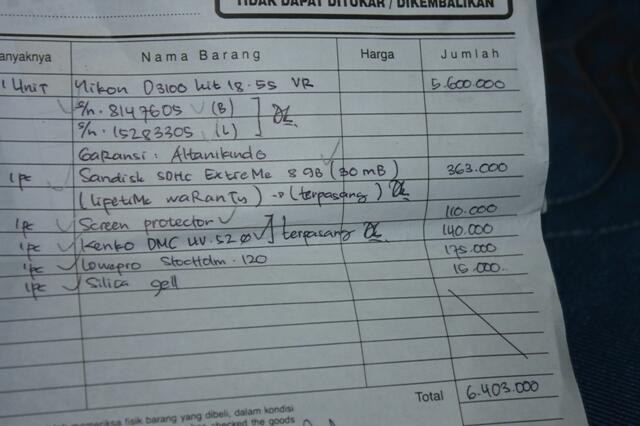 TIDAK DAPAT DITUKAR / DIKEMBALIKAN
anyaknya Nama Barang Harga Jumlah
1 Unit Nikon D3100 kit 18-55 VR 5.600.000
S/n. 8147605 (B)
S/n. 15283305 (L)
Garansi: Altanikindo
1pc Sandisk SDHC Extreme 8 GB (30 MB) 363.000
(Lifetime waRanTy) → (terpasang)
1pc Screen protector 110.000
1pc Kenko DMC UV. 52 terpasang 140.000
1pc Lowepro Stockholm. 120 175.000
1pc Silica gell 15.000
Total 6.403.000
memeriksa fisik barang yang dibeli, dalam kondisi
checked the goods